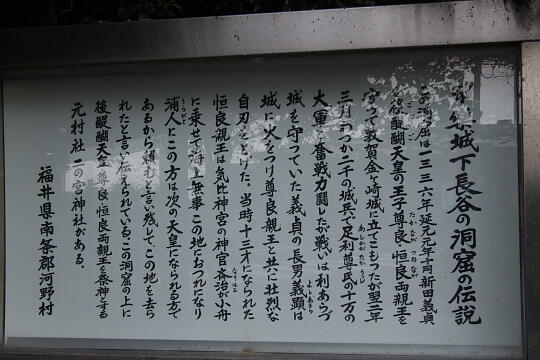 下長谷の洞窟の伝説
この洞窟は一三三六年延元元年十月新田義貞
が後醍醐天皇の王子尊良・恒良両親王を
守って敦賀金ヶ崎城に立てこもったが翌二年
三月わづか二千の城兵で足利尊氏の十万の
大軍と奮戦力闘したが戦いは利あらづ
城を守っていた義貞の長男義顕は
城に火をつけ尊良親王と共に壮烈な
自刃をとげた。当時十三才になられた
恒良親王は気比神宮の神官斉治が小舟
に乗せて海上無事この地におつれになり
浦人にこの方は次の天皇になられる方で
あるから頼むと言い残して、この地を去ら
れたと言い伝えられている、この洞窟の上に
後醍醐天皇尊良・恒良両親王を祭神とする
元村社一の宮神社がある。
福井県南条郡河野村